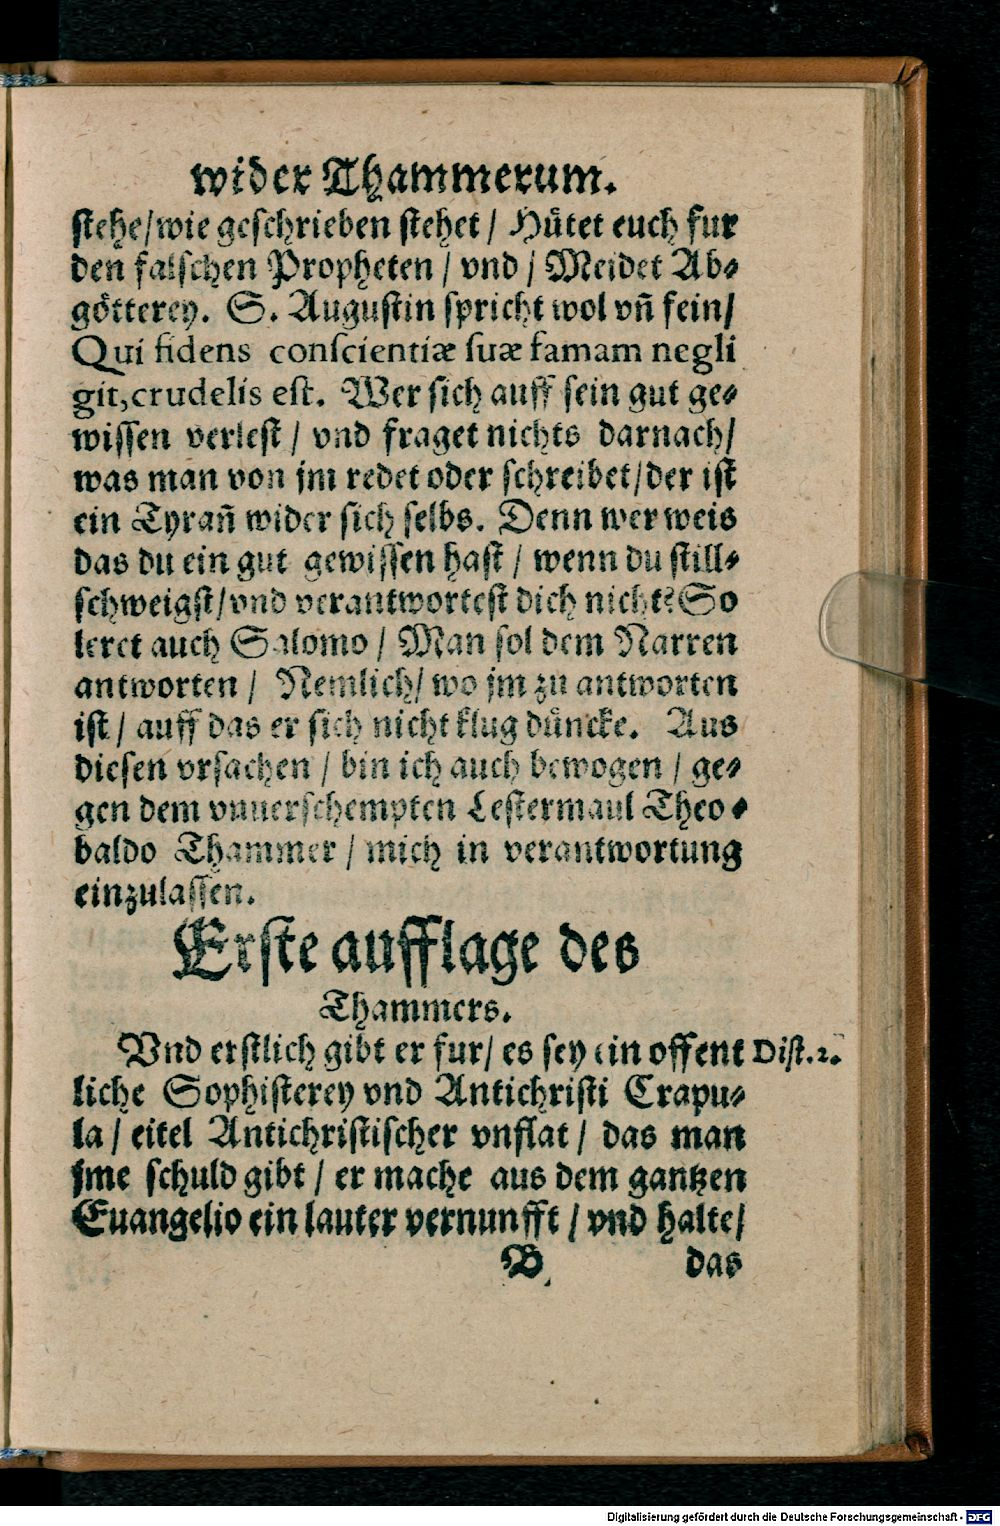 wider Thammerum.
stehe/wie geschrieben stehet / Hütet euch fur
den falschen Propheten / vnd / Meidet Ab-
götterey. S. Augustin spricht wol vñ fein/
Qui fidens conſcientiæ ſuæ famam negli
git, crudelis eſt. Wer sich auff sein gut ge-
wissen verlest / vnd fraget nichts darnach/
was man von jm redet oder schreibet/der ist
ein Tyrañ wider sich selbs. Denn wer weis
das du ein gut gewissen hast / wenn du still-
schweigst/vnd verantwortest dich nicht? So
leret auch Salomo / Man sol dem Narren
antworten / Nemlich/ wo jm zu antworten
ist / auff das er sich nicht klug düncke. Aus
diesen vrsachen / bin ich auch bewogen / ge-
gen dem vnuerschempten Lestermaul Theo-
baldo Thammer / mich in verantwortung
einzulassen.
Erste aufflage des
Thammers.
Vnd erstlich gibt er fur/ es sey ein offent Dist.2.
liche Sophisterey vnd Antichristi Crapu-
la / eitel Antichristischer vnflat / das man
jme schuld gibt / er mache aus dem gantzen
Euangelio ein lauter vernunfft / vnd halte/
B das
Digitalisierung gefördert durch die Deutsche Forschungsgemeinschaft - DFG